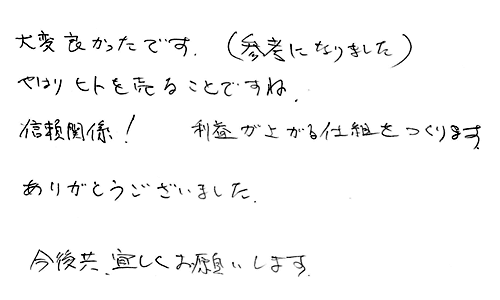 大変良かったです.（参考になりました）
やはりヒトを売ることですね.
信頼関係！ 利益が上がる仕組をつくります
ありがとうございました.
今後共.宜しくお願いします.